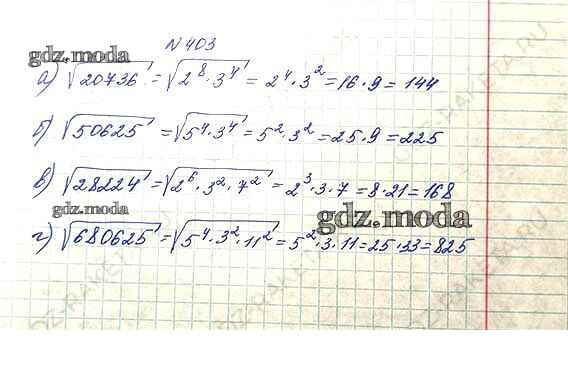 №403
gdz.moda
а) √20736 = √2⁸·3⁴ = 2⁴·3² = 16·9 = 144
б) √50625 = √5⁴·3⁴ = 5²·3² = 25·9 = 225
в) √28224 = √2⁶·3²·7² = 2³·3·7 = 8·21 = 168
gdz.moda
gdz.moda
г) √680625 = √5⁴·3²·11² = 5²·3·11 = 25·33 = 825
GDZ-RAKETA.RU